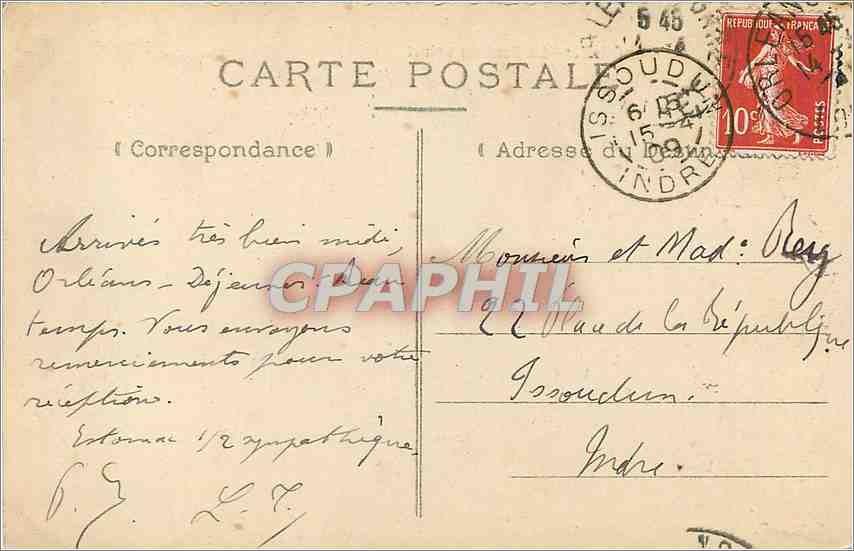 CARTE POSTALE
REPUBLIQUE FRANCAISE
10c
POSTES
ORLEANS
15
14
5 45
ISSOUDUN
6 15
15-4
09
INDRE
( Correspondance )
( Adresse du Destin
Arrivés très bien midi,
Orléans - Déjeuner. Beau
temps. Vous envoyons
remerciements pour votre
réception.
Estomac 1/2 sympathique.
L. T.
Monsieur et Mad: Rey
22 Place de la République
Issoudun.
Indre.
CPAPHIL